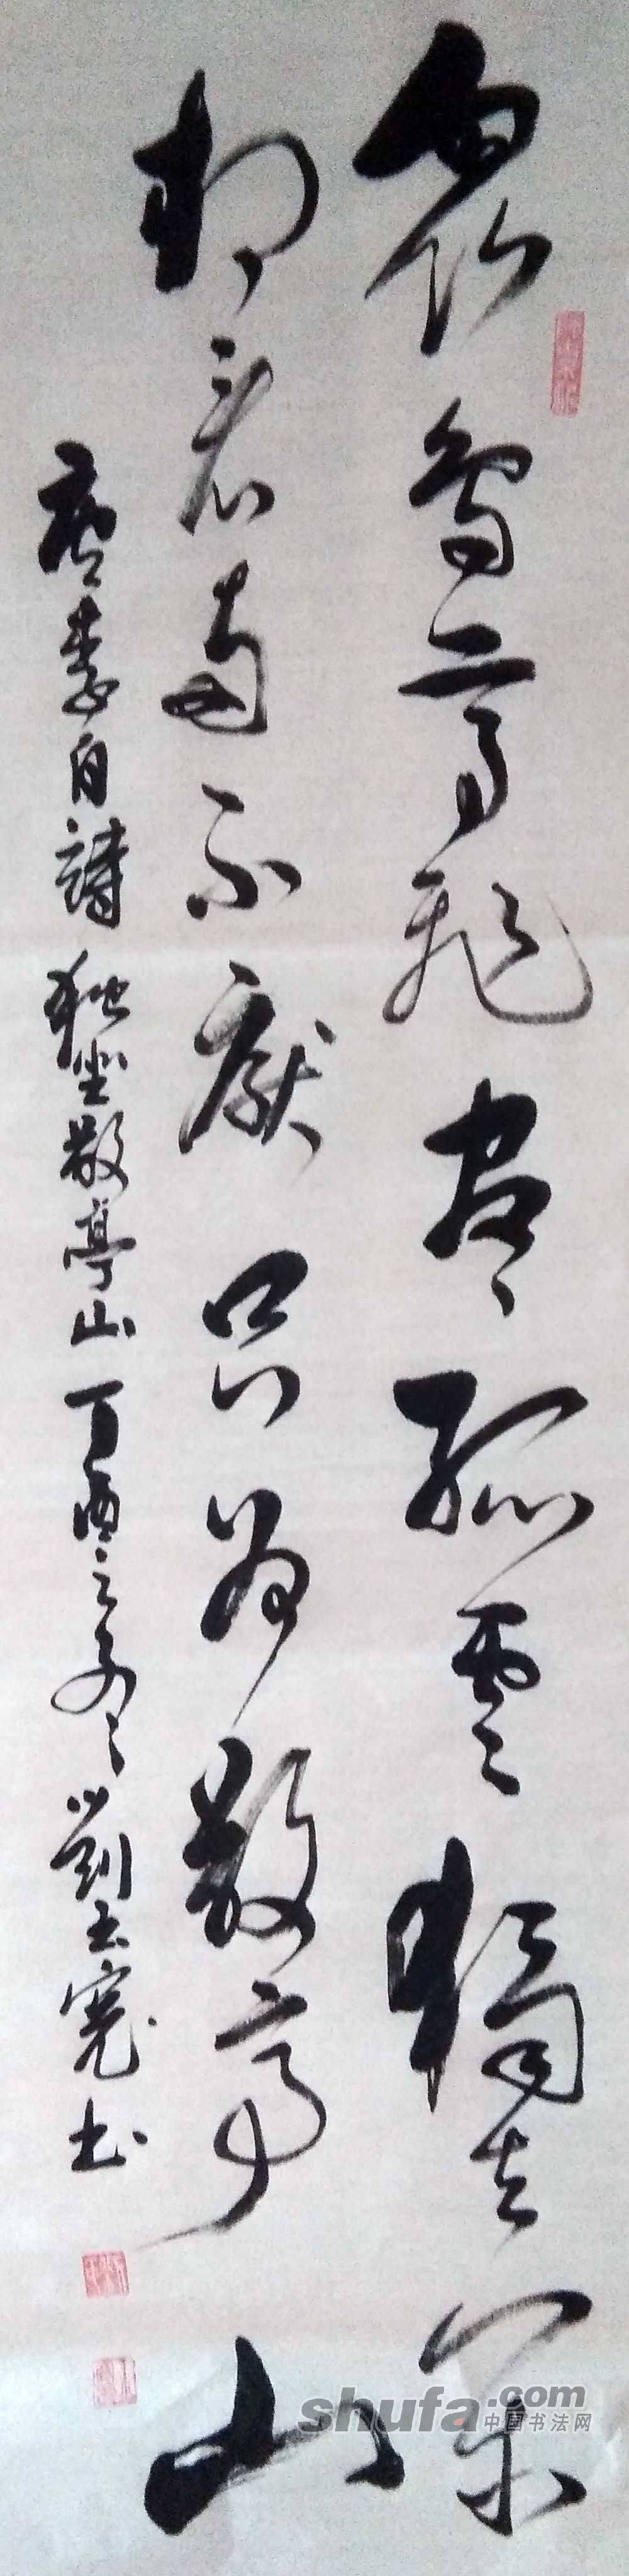 眾鳥高飛盡孤雲獨去閑
相看兩不厭只為敬亭山
唐李白詩独坐敬亭山丁酉之冬劉士寬书
shufa.com
中國书法网